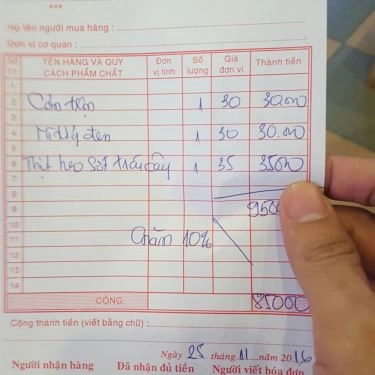 ***
Họ tên người mua hàng :
Đơn vị cơ quan :
Số TT TÊN HÀNG VÀ QUY CÁCH PHẨM CHẤT Đơn vị tính Số lượng Giá đơn vị Thành tiền
1
2 Cơm trộn 1 30 30.000
3
4 Mì lý đen 1 30 30.000
5
6 Thịt heo sốt trái cây 1 35 35000
7
8
9 9500
10
11 Giảm 10%
12
13
14
CỘNG: 85000
Cộng thành tiền (viết bằng chữ) :
Ngày 25 tháng 11 năm 2016
Người nhận hàng Đã nhận đủ tiền Người viết hóa đơn